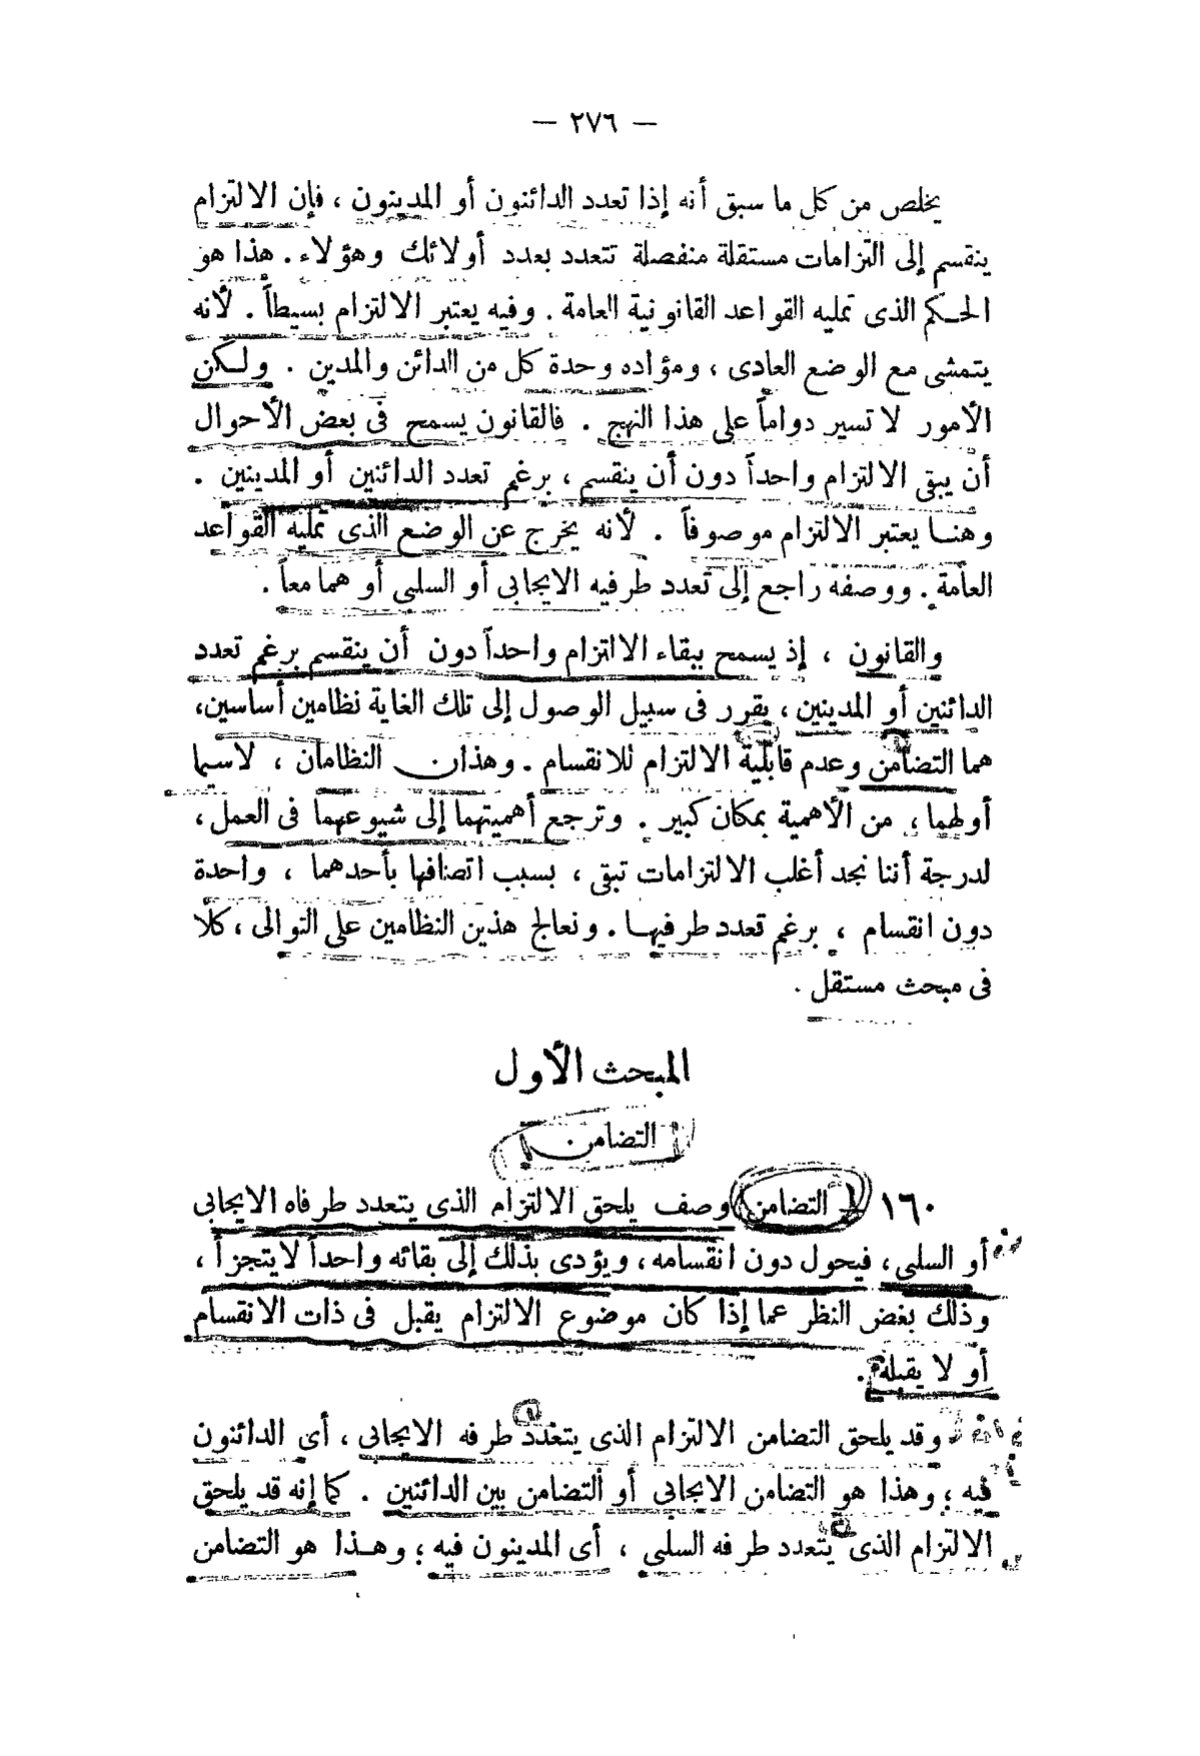 — ٢٧٦ —
يخلص من كل ما سبق أنه إذا تعدد الدائنون أو المدينون ، فإن الالتزام
ينقسم إلى التزامات مستقلة منفصلة تتعدد بعدد أولائك وهؤلاء . هذا هو
الحكم الذى تمليه القواعد القانونية العامة . وفيه يعتبر الالتزام بسيطاً . لأنه
يتمشى مع الوضع العادى ، ومؤداه وحدة كل من الدائن والمدين . ولكن
الأمور لا تسير دواماً على هذا النهج . فالقانون يسمح فى بعض الأحوال
أن يبقى الالتزام واحداً دون أن ينقسم ، برغم تعدد الدائنين أو المدينين .
وهنا يعتبر الالتزام موصوفاً . لأنه يخرج عن الوضع الذى تمليه القواعد
العامة . ووصفه راجع إلى تعدد طرفيه الايجابى أو السلبى أو هما معاً .
والقانون ، إذ يسمح ببقاء الالتزام واحداً دون أن ينقسم برغم تعدد
الدائنين أو المدينين ، يقرر فى سبيل الوصول إلى تلك الغاية نظامين أساسين ،
هما التضامن وعدم قابلية الالتزام للانقسام . وهذان النظامان ، لاسيما
أولهما ، من الأهمية بمكان كبير . وترجع أهميتهما إلى شيوعهما فى العمل ،
لدرجة أننا نجد أغلب الالتزامات تبقى ، بسبب اتصافها بأحدهما ، واحدة
دون انقسام ، برغم تعدد طرفيها . ونعالج هذين النظامين على التوالى ، كلا
فى مبحث مستقل .
المبحث الأول
التضامن
١٦٠ التضامن وصف يلحق الالتزام الذى يتعدد طرفاه الايجابى
أو السلبى ، فيحول دون انقسامه ، ويؤدى بذلك إلى بقائه واحداً لا يتجزأ ،
وذلك بغض النظر عما إذا كان موضوع الالتزام يقبل فى ذات الانقسام
أو لا يقبله .
وقد يلحق التضامن الالتزام الذى يتعدد طرفه الايجابى ، أى الدائنون
فيه ؛ وهذا هو التضامن الايجابى أو التضامن بين الدائنين . كما إنه قد يلحق
الالتزام الذى يتعدد طرفه السلبى ، أى المدينون فيه ؛ وهذا هو التضامن